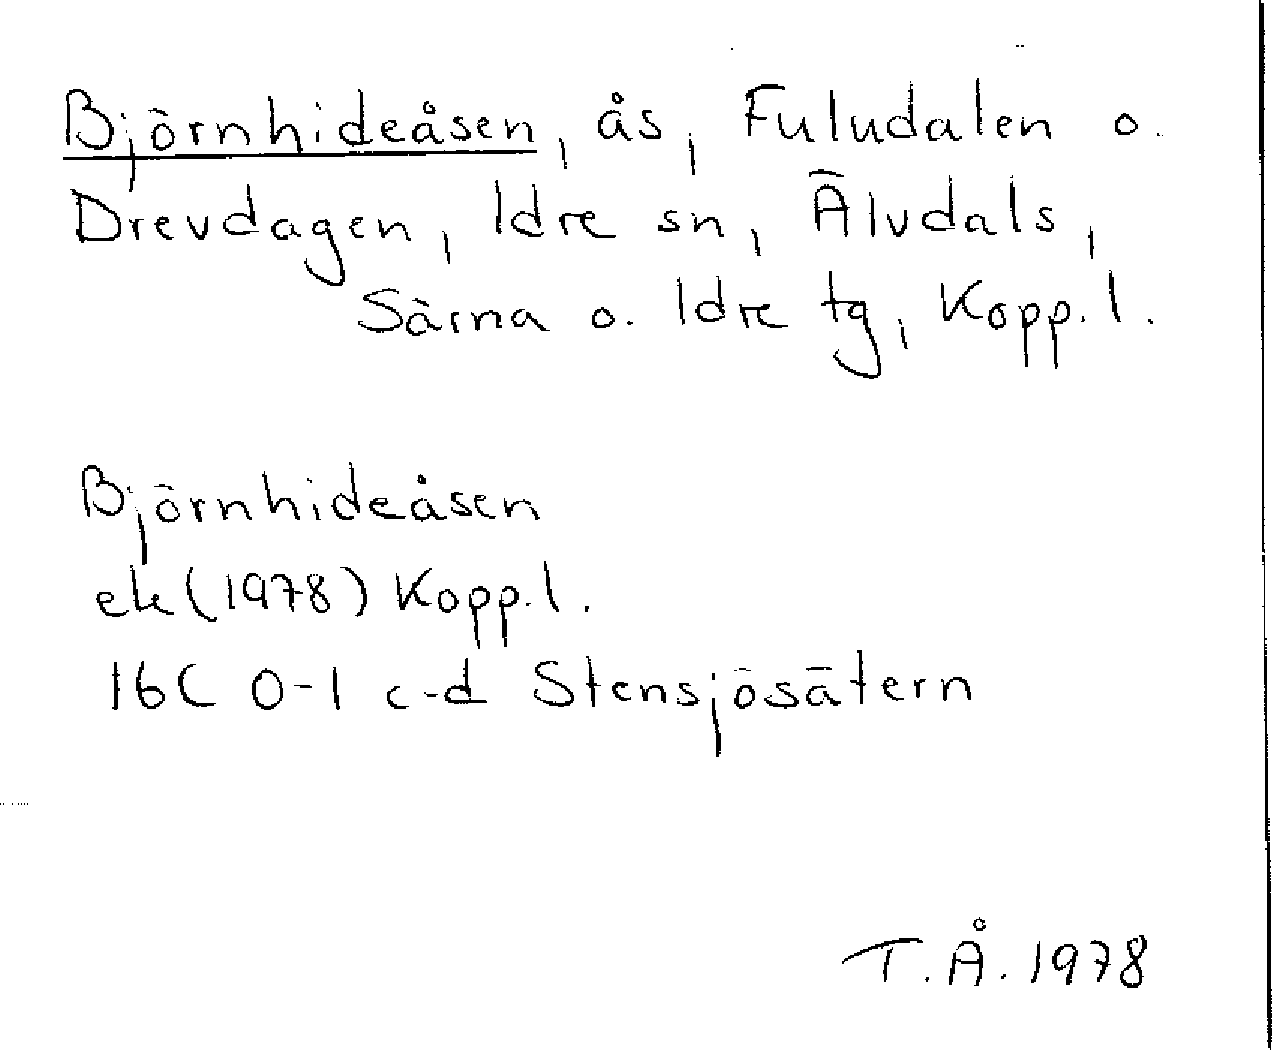 Björnhideåsen, ås, Fuludalen o.
Drevdagen, Idre sn, Älvdals,
Särna o. Idre tg, Kopp.l.
Björnhideåsen
ek (1978) Kopp.l.
16C 0-1 c-d Stensjösätern
T.Å. 1978